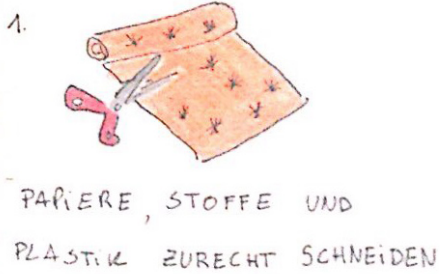 1.
PAPiERE, STOFFE UND
PLASTiK ZURECHT SCHNEiDEN